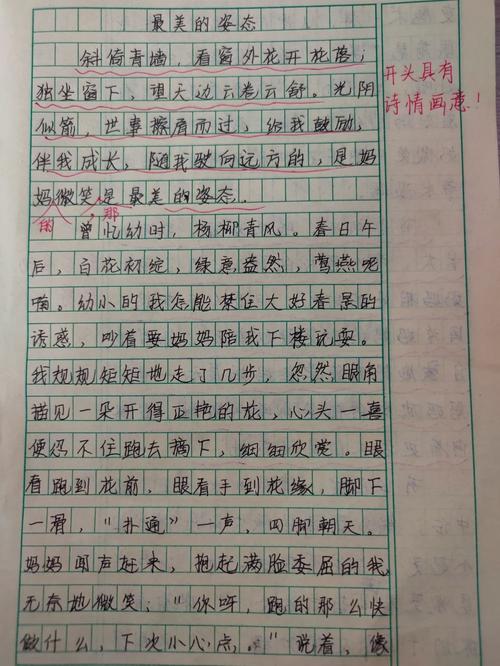 最美的姿态
斜倚青墙，看窗外花开花落；
独坐窗下，望天边云卷云舒。光阴
似箭，世事擦肩而过，给我鼓励，
伴我成长，随我驶向远方的，是妈
妈微笑是最美的姿态。
的 ，那
曾忆幼时，杨柳青风。春日午
后，百花初绽，绿意盎然，莺燕呢
喃。幼小的我怎能禁住大好春景的
诱惑，吵着要妈妈陪我下楼玩耍。
我规规矩矩地走了几步，忽然眼角
瞄见一朵开得正艳的花，心头一喜
便忍不住跑去摘下，细细欣赏。眼
看跑到花前，眼看手到花缘，脚下
一滑，“扑通”一声，四脚朝天。
妈妈闻声赶来，抱起满脸委屈的我
无奈地微笑：“你呀，跑的那么快
做什么，下次小心点。”说着，像
开头具有
诗情画意！